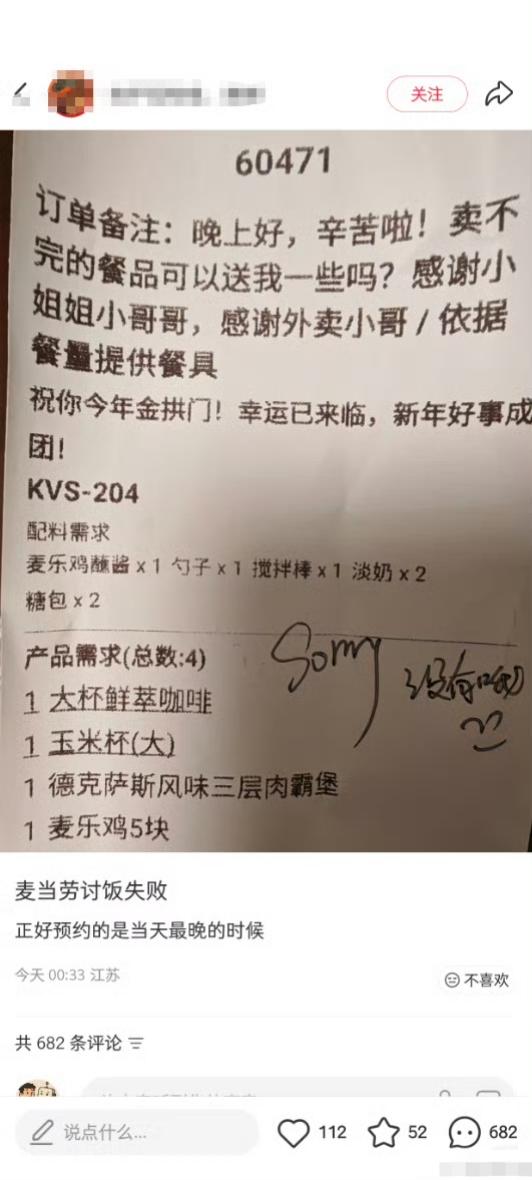 关注
60471
订单备注：晚上好，辛苦啦！卖不
完的餐品可以送我一些吗？感谢小
姐姐小哥哥，感谢外卖小哥 / 依据
餐量提供餐具
祝你今年金拱门！幸运已来临，新年好事成
团！
KVS-204
配料需求
麦乐鸡蘸酱 x 1 勺子 x 1 搅拌棒 x 1 淡奶 x 2
糖包 x 2
产品需求(总数:4)
1 大杯鲜萃咖啡
1 玉米杯(大)
1 德克萨斯风味三层肉霸堡
1 麦乐鸡5块
Sorry 没有呦
麦当劳讨饭失败
正好预约的是当天最晚的时候
今天 00:33 江苏
不喜欢
共 682 条评论
说点什么...
112
52
682